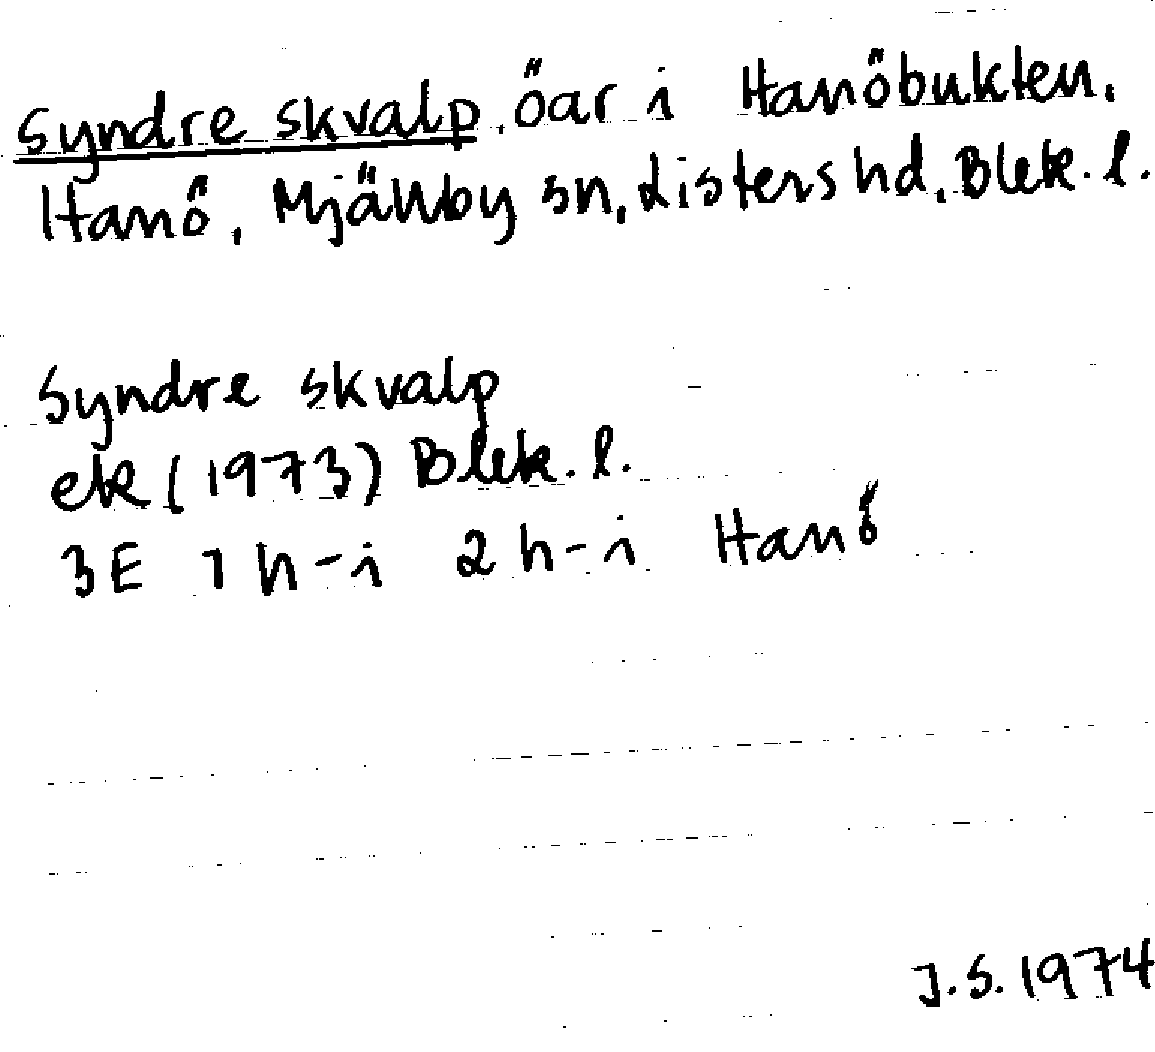 Syndre skvalp, öar i Hanöbukten,
Hanö, Mjällby sn, Listers hd, Blek. l.
Syndre skvalp
ek (1973) Blek. l.
3E 1h-i 2h-i Hanö
J.S. 1974